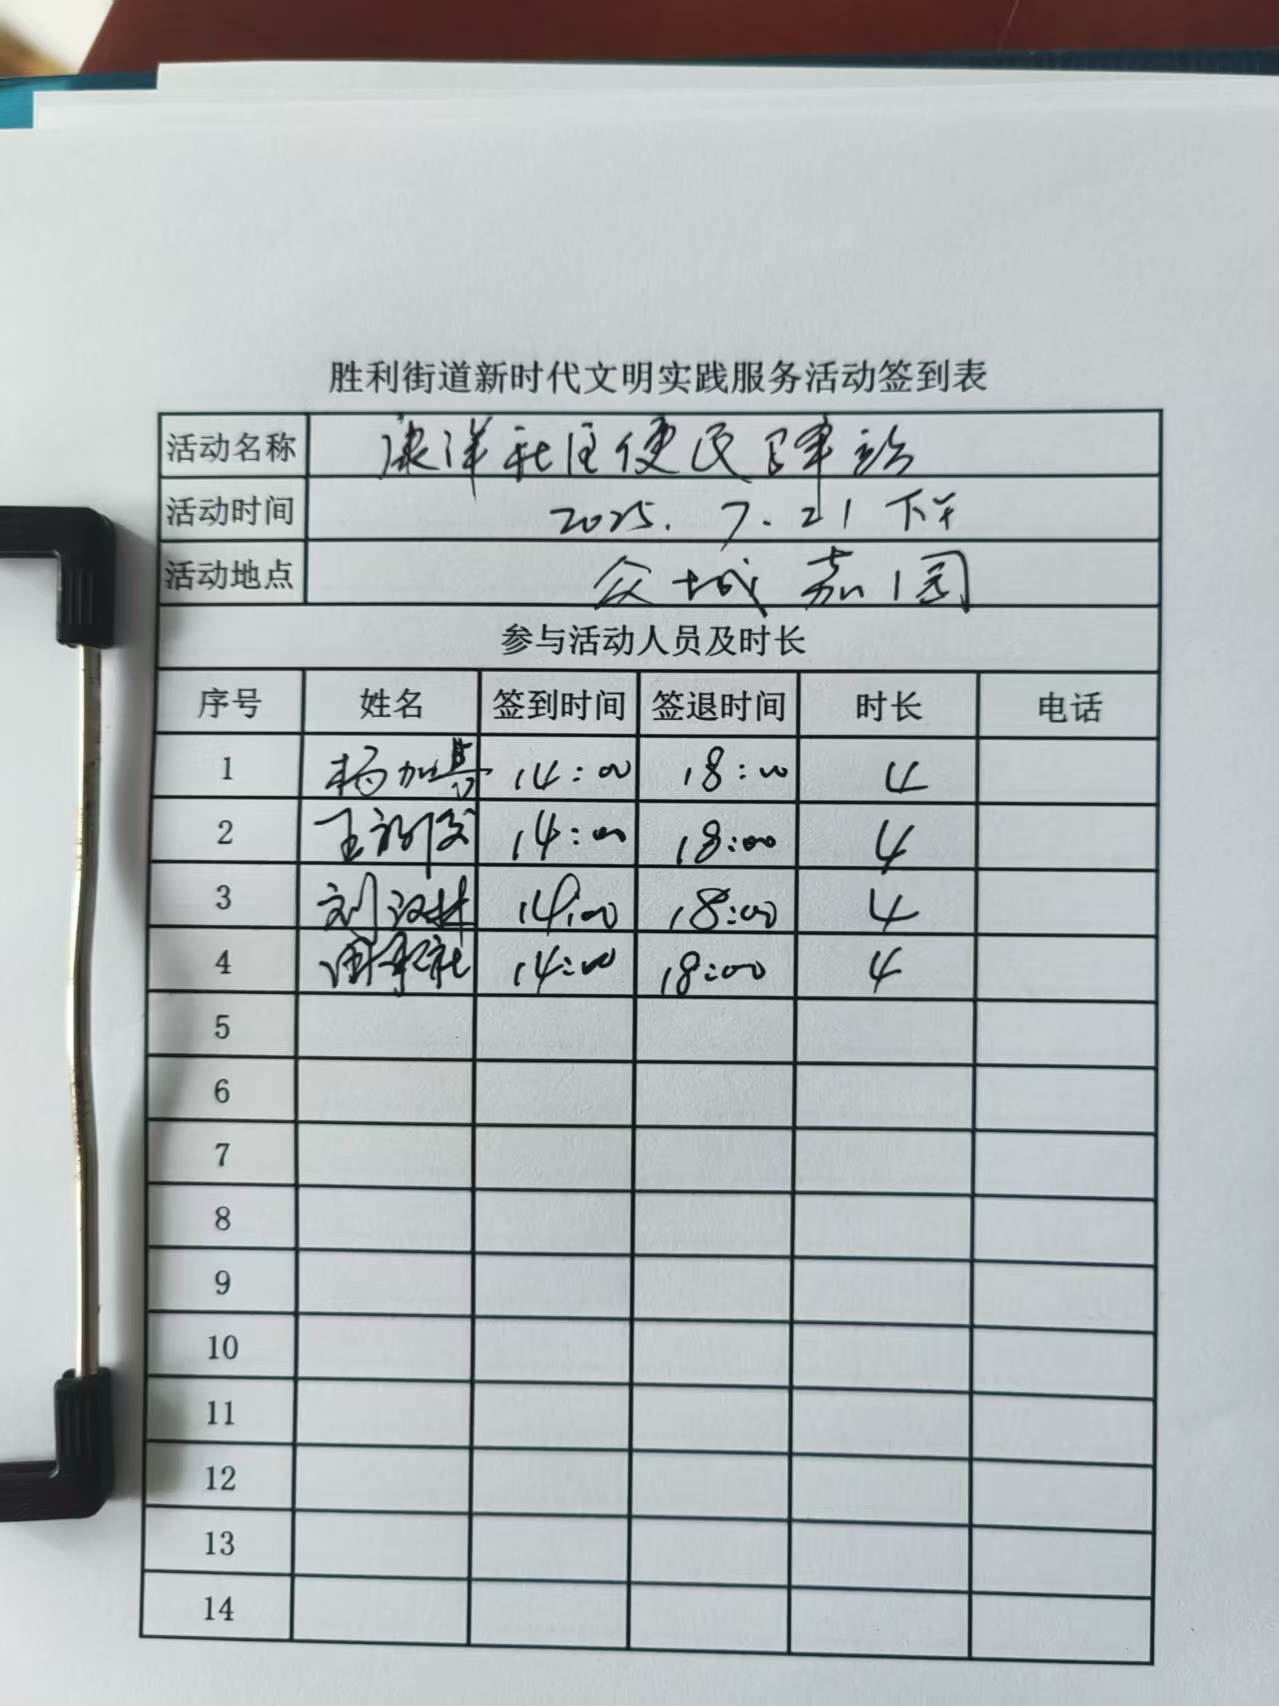 胜利街道新时代文明实践服务活动签到表
活动名称 康洋社区便民驿站
活动时间 2025.7.21 下午
活动地点 众城嘉园
参与活动人员及时长
序号 姓名 签到时间 签退时间 时长 电话
1 杨加 14:00 18:00 4
2 王 14:00 18:00 4
3 刘汉林 14:00 18:00 4
4 14:00 18:00 4
5
6
7
8
9
10
11
12
13
14